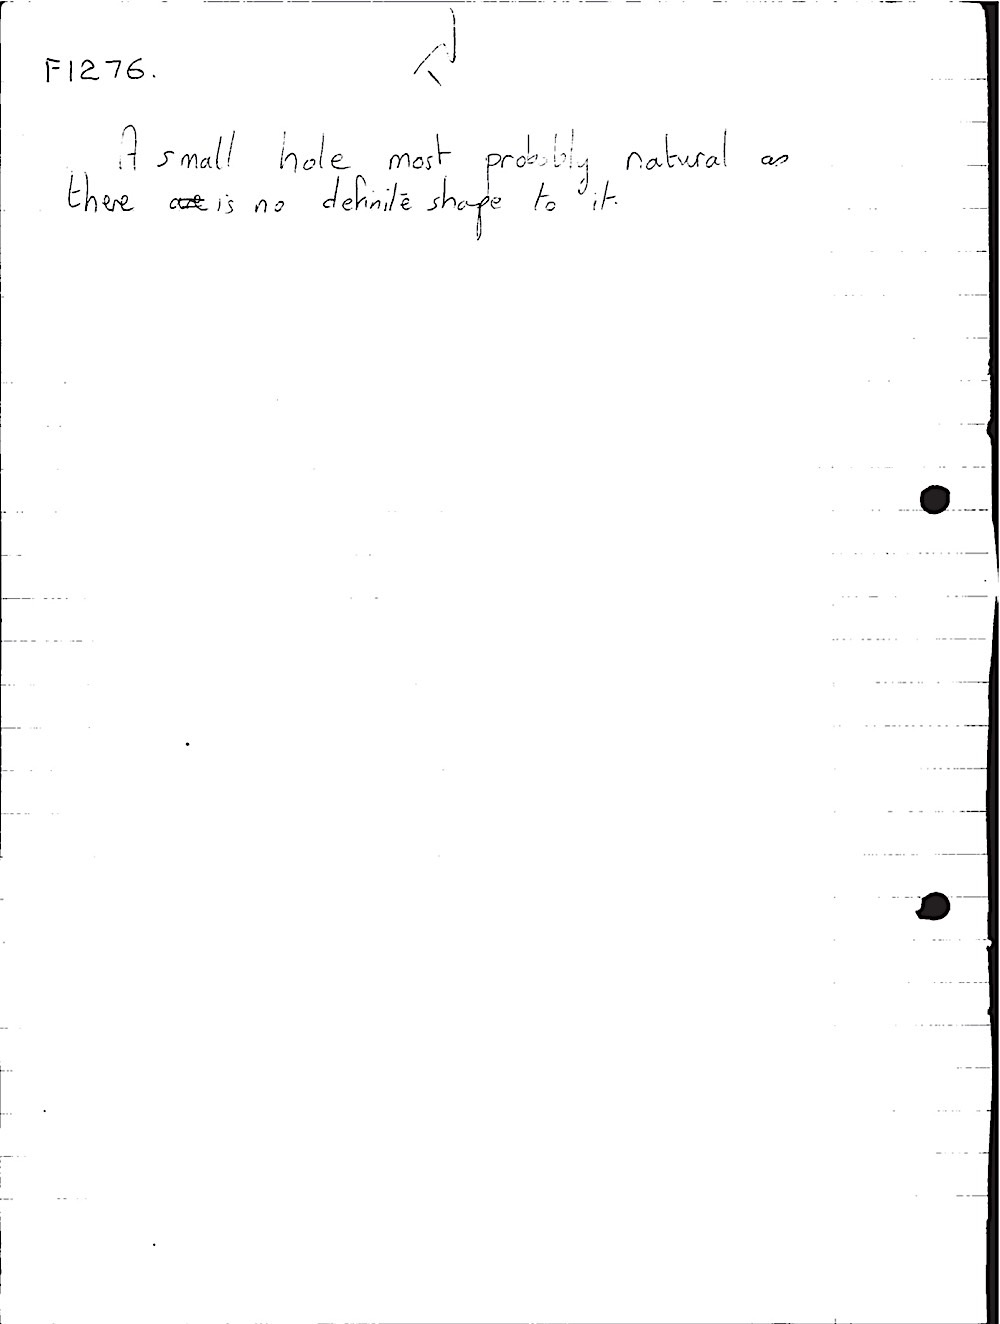 F1276.
A small hole most probably natural as
there are is no definite shape to it.